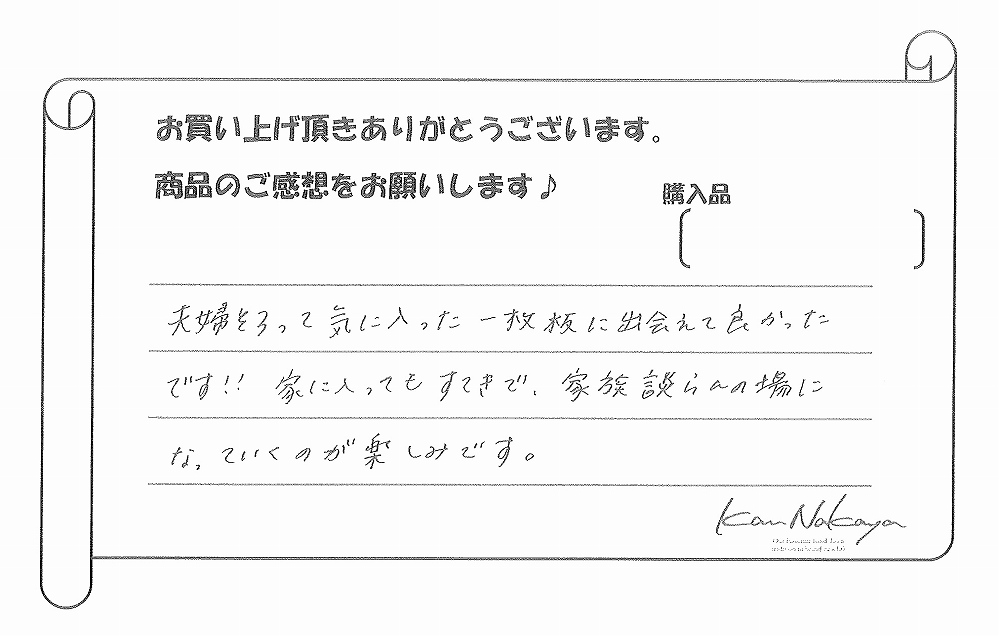 お買い上げ頂きありがとうございます。
商品のご感想をお願いします♪
購入品
夫婦そろって気に入った一枚板に出会えて良かった
です!! 家に入ってもすてきで、家族談らんの場に
なっていくのが楽しみです。
Kan Nakaya